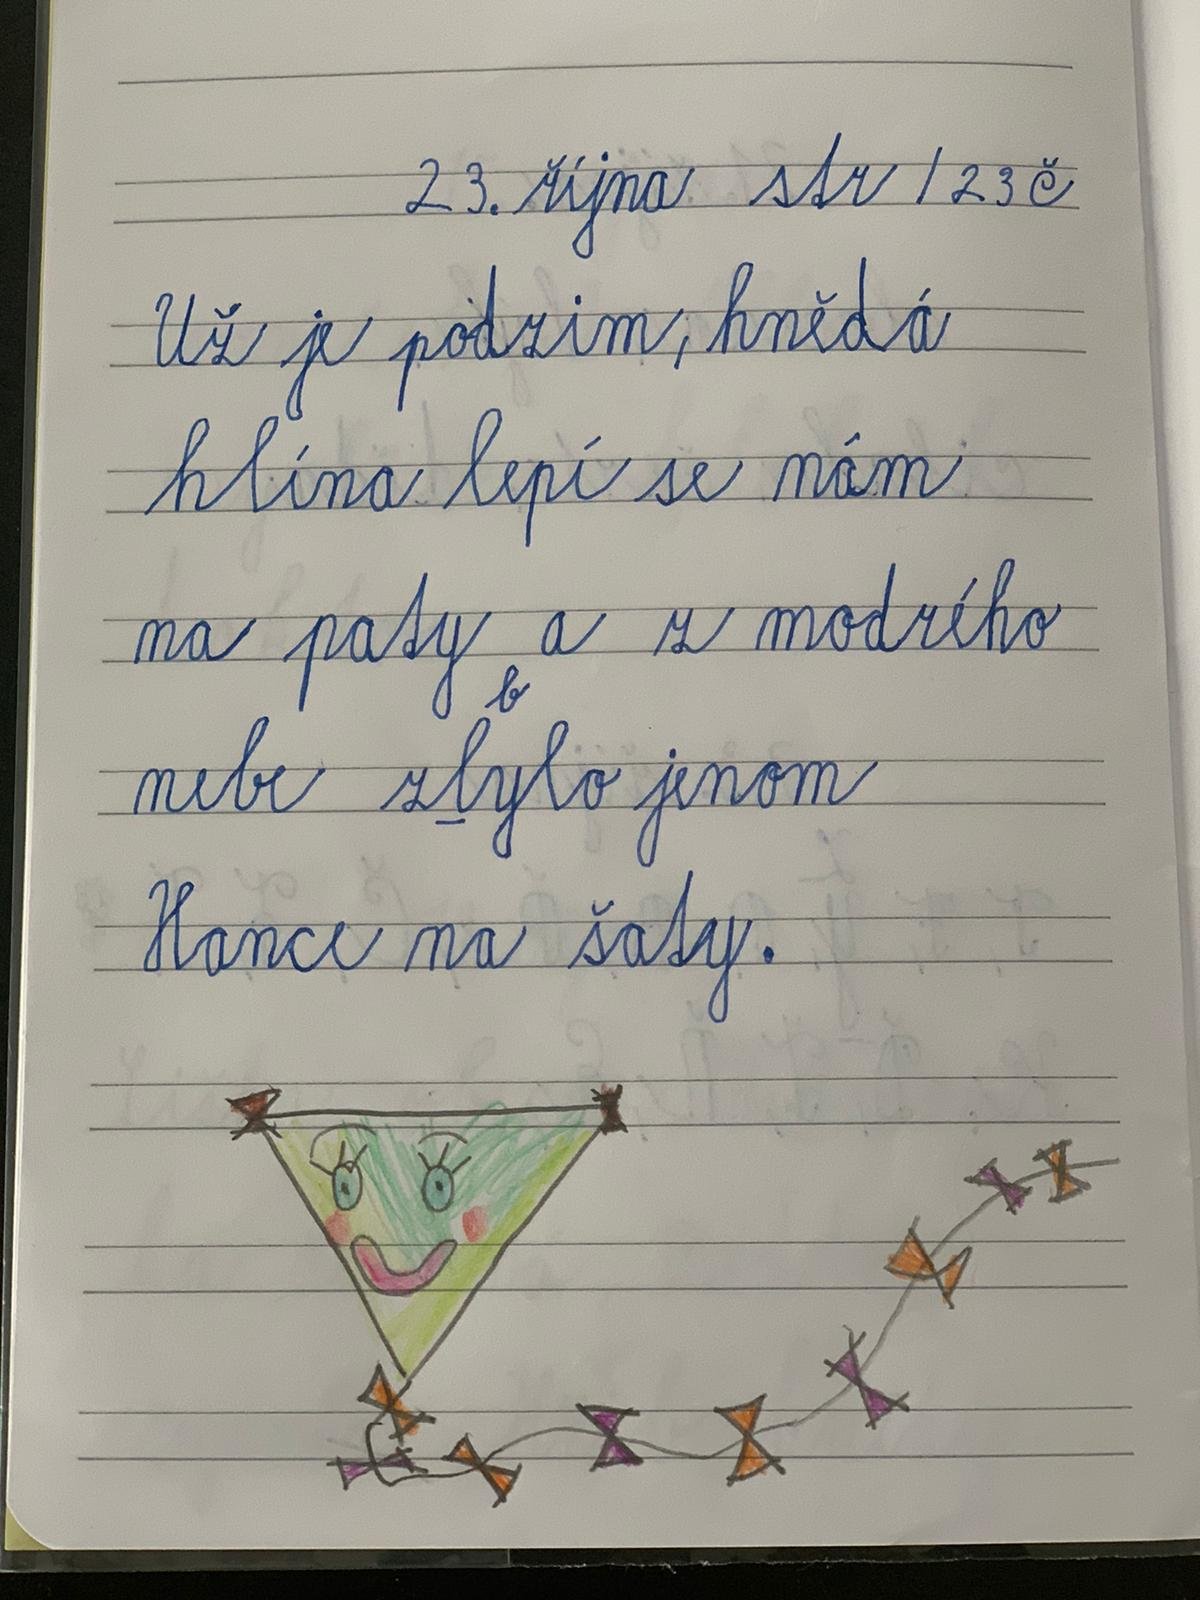 23. října str / 23 č
Už je podzim, hnědá
hlína lepí se nám
na paty a z modrého
b
nebe zlylo jenom
Hance na šaty.